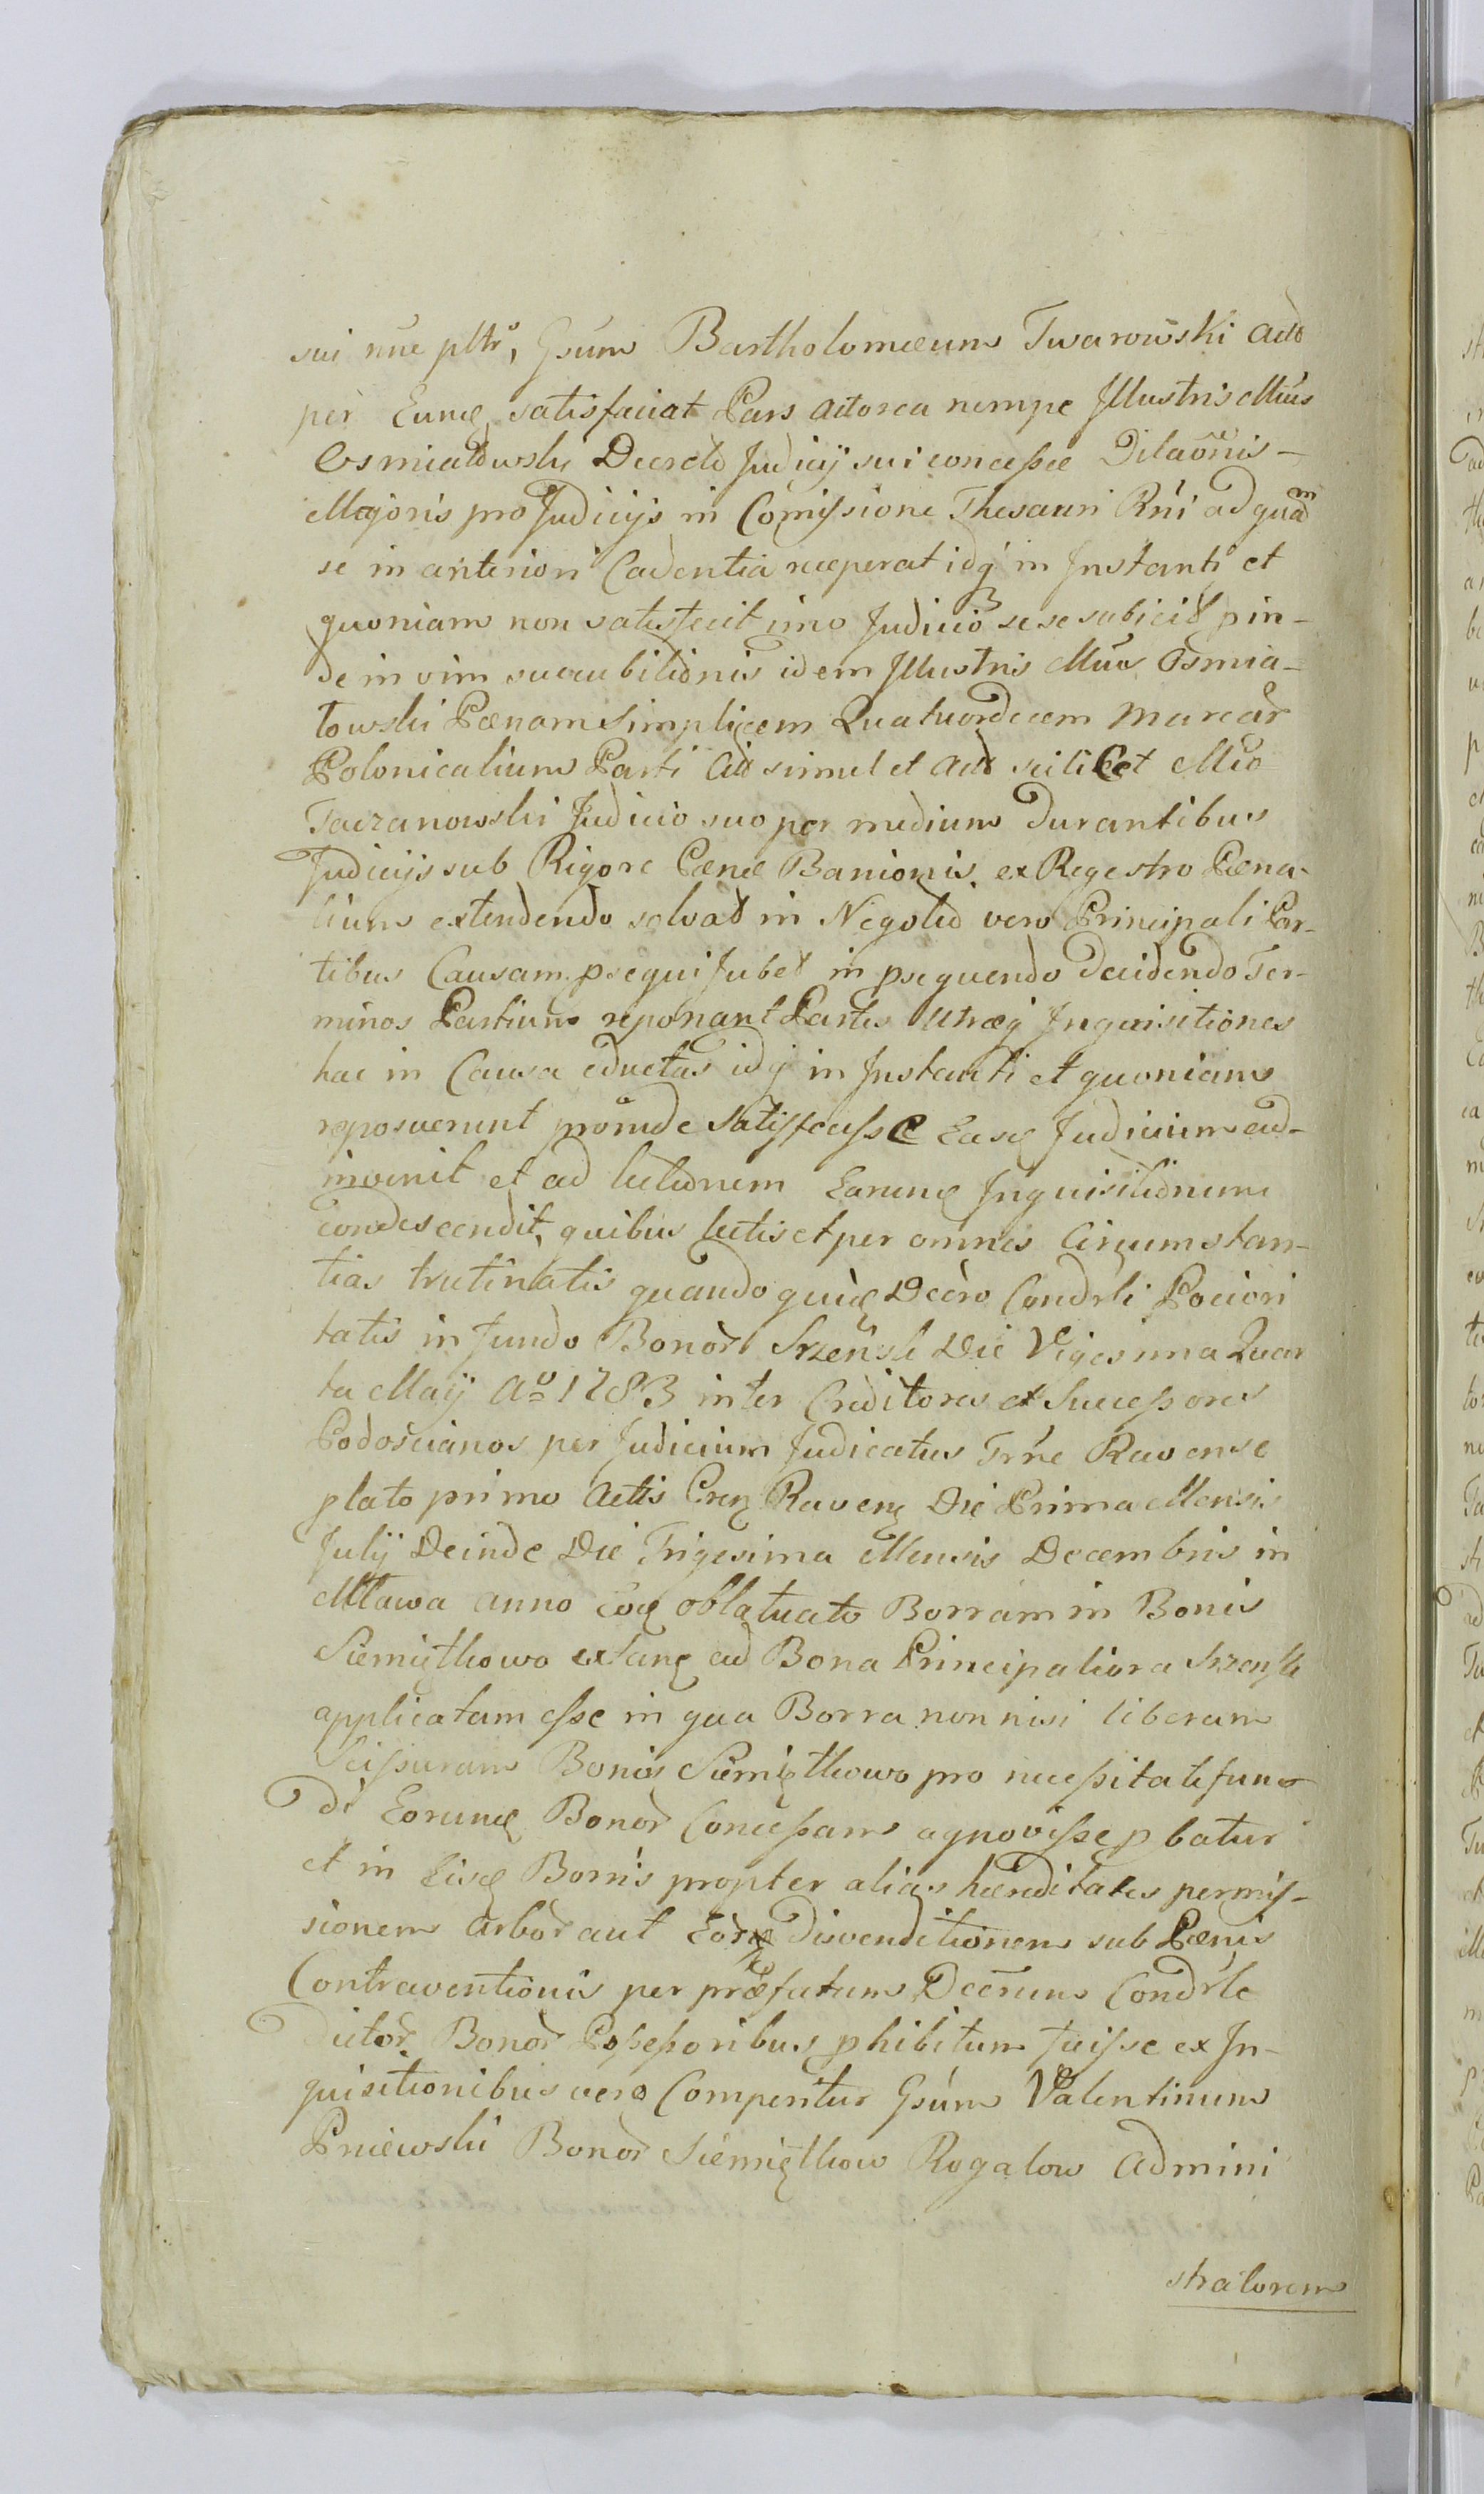 sui nūc pltr, Gsum Bartholomæum Twarowski acto
per Eund satisfaciat Pars actorea nempe Jllustris Mūus
Osmiałowski Decreto Judicij sui concessæ Dilaōnis -
Majoris pro Judicijs in Comissione Thesauri Rni ad quam
se in anteriori Cadentia receperat idq in Jnstanti et
quoniam non satisfecit imo Judicio sese subiecit pin-
de in vim succubitionis idem Jllustris Mūus Osmia-
łowski Pænam simplicem Quatuordecem Marcar
Polonicalium Parti Ad simul et Act scilicet Mco
Taczanowski Judicio suo per medium durantibus
Judicijs sub Rigore Pænæ Banionis ex Regestro Pæna-
lium extendendo solvat in Negotio vero Principali Par-
tibus Causam psequi Jubet in psequendo decidendo Ter-
minos Partium reponant Partes Utræq Jnquisitiones
hac in Causa eductas idq in Jnstanti et quoniam
reposuerunt proinde Satisfecisse Easd Judicium ad-
invenit et ad lectionem Earund Jnquisitionum
condescendit, quibus lectis et per omnes Circumstan-
tias trutinatis quando quid Decro Condrli Pociori
tatis in fundo Bonor Srzensk Die Vigesima Quar
ta Maij Ao 1783 inter Creditores et Successores
Podoscianos per Judicium Judicatus Trrae Ravense
plato primo Actis Cren Raven Die Prima Mensis
Julij Deinde Die Trigesima Mensis Decembris in
Mława anno eod oblatuato Borram in Bonis
Siemiątkowo extan ad Bona Principaliora Srzensk
applicatam esse in qua Borra non nisi liberam
Scissuram Bonis Siemiątkowo pro necessitate fun-
di Eorund Bonor Concessam agnovisse pbatur
et in Eisd Borris propter alias hæreditates permis-
sionem Arbor aut Eor divenditionem sub Pænis
Contraventionis per præfatum Decrum Condrle
dictor Bonor Possessoribus phibitum fuisse ex Jn-
quisitionibus vero Comperitur Gsum Valentinum
Pniewski Bonor Siemiątkow Rogalow Admini
stratorem